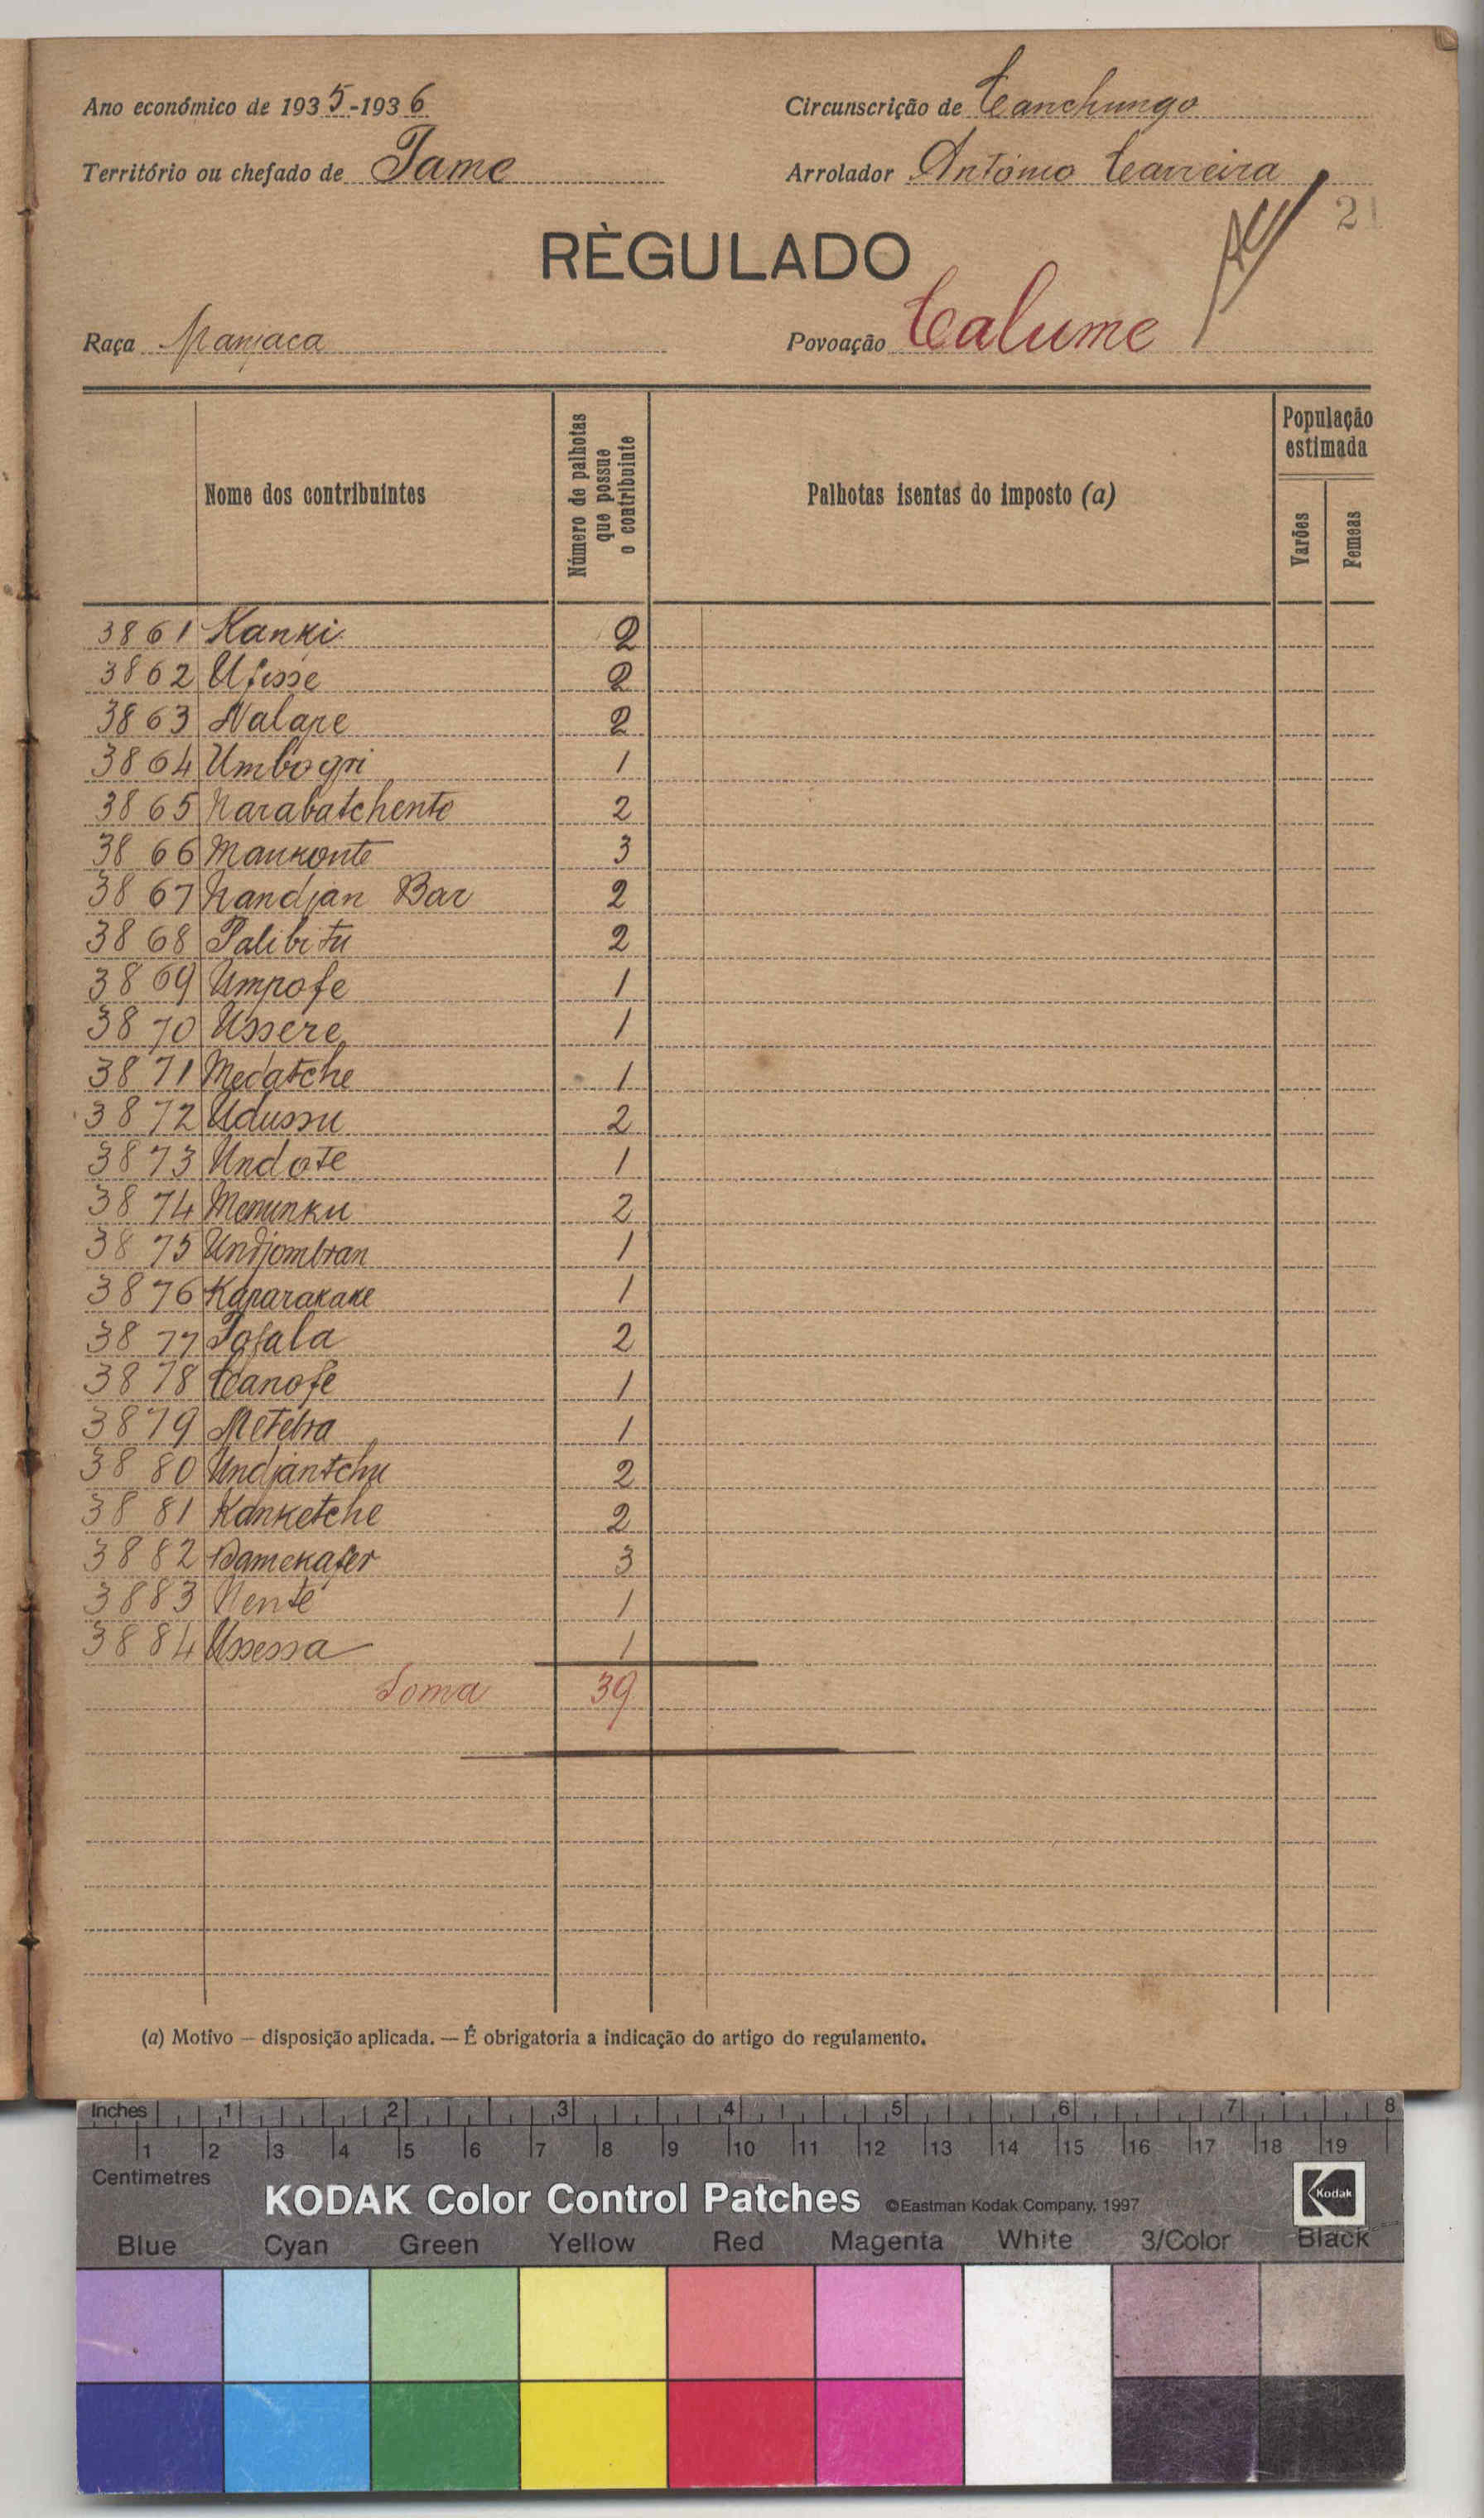 Ano económico de 1935-1936
Circunscrição de Canchungo
Território ou chefado de Tame
Arrolador António Carreira
21
RÈGULADO
Raça Manjaca
Povoação Calume
Nome dos contribuintes
Número de palhotas que possue o contribuinte
Palhotas isentas do imposto (a)
População estimada
Varões
Femeas
3861 Kanki 2
3862 Ufisse 2
3863 Nalape 2
3864 Umbogri 1
3865 Narabatchente 2
3866 Maukonte 3
3867 Nandjan Bar 2
3868 Palibitu 2
3869 Umpofe 1
3870 Ussere 1
3871 Medatche 1
3872 Udussu 2
3873 Undote 1
3874 Menunku 2
3875 Undjombran 1
3876 Kaparakake 1
3877 Tofala 2
3878 Canofe 1
3879 Metebra 1
3880 Undjantchu 2
3881 Kanketche 2
3882 Bamekafer 3
3883 Nente 1
3884 Ussessa 1
Soma 39
(a) Motivo — disposição aplicada. — É obrigatoria a indicação do artigo do regulamento.
Inches 1 2 3 4 5 6 7 8
1 2 3 4 5 6 7 8 9 10 11 12 13 14 15 16 17 18 19
Centimetres
KODAK Color Control Patches ©Eastman Kodak Company, 1997 Kodak
Blue Cyan Green Yellow Red Magenta White 3/Color Black